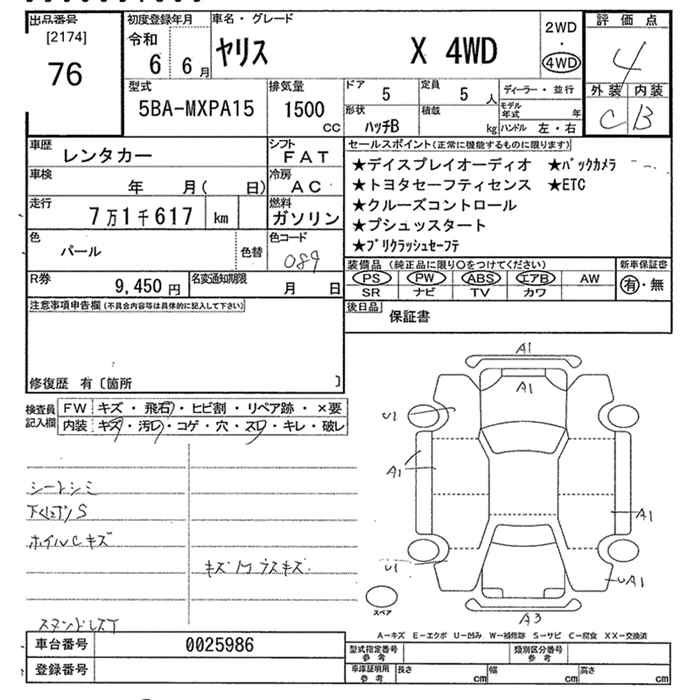 出品番号
[2174]
76
初度登録年月
令和
6 6月
車名・グレード
ヤリス X 4WD
2WD
・
4WD
評価点
4
外装 内装
C B
型式
5BA-MXPA15
排気量
1500
CC
ドア
5
定員
5 人
形状
ハッチB
積載
kg
ディーラー・並行
モデル年式 年
ハンドル 左・右
車歴
レンタカー
シフト
FAT
車検
年 月( 日)
冷房
AC
走行
7万1千617 km
燃料
ガソリン
色
パール
色替
色コード
089
R券
9,450円
名変通知期限
月 日
セールスポイント(正常に機能するものに限ります)
★デイスプレイオーディオ ★バックカメラ
★トヨタセーフティセンス ★ETC
★クルーズコントロール
★プシュッスタート
★プリクラッシュセーフテ
装備品(純正品に限り○をつけてください)
PS PW ABS エアB AW
SR ナビ TV カワ
新車保証書
有・無
後日品
保証書
注意事項申告欄(不具合内容等は具体的に記入して下さい)
修復歴 有〔箇所 〕
検査員記入欄
FW キズ・飛石・ヒビ割・リペア跡・×要
内装 キズ・汚レ・コゲ・穴・スレ・キレ・破レ
シートシミ
S
ホイルCキズ
キズ
A1
A1
U1
A1
A1
U1
UA1
A3
スペア
A-キズ E-エクボ U-凹み W-補修跡 S-サビ C-腐食 XX-交換済
車台番号
0025986
登録番号
型式指定番号
参考
類別区分番号
参考
車庫証明用
参考
長さ cm
幅 cm
高さ cm